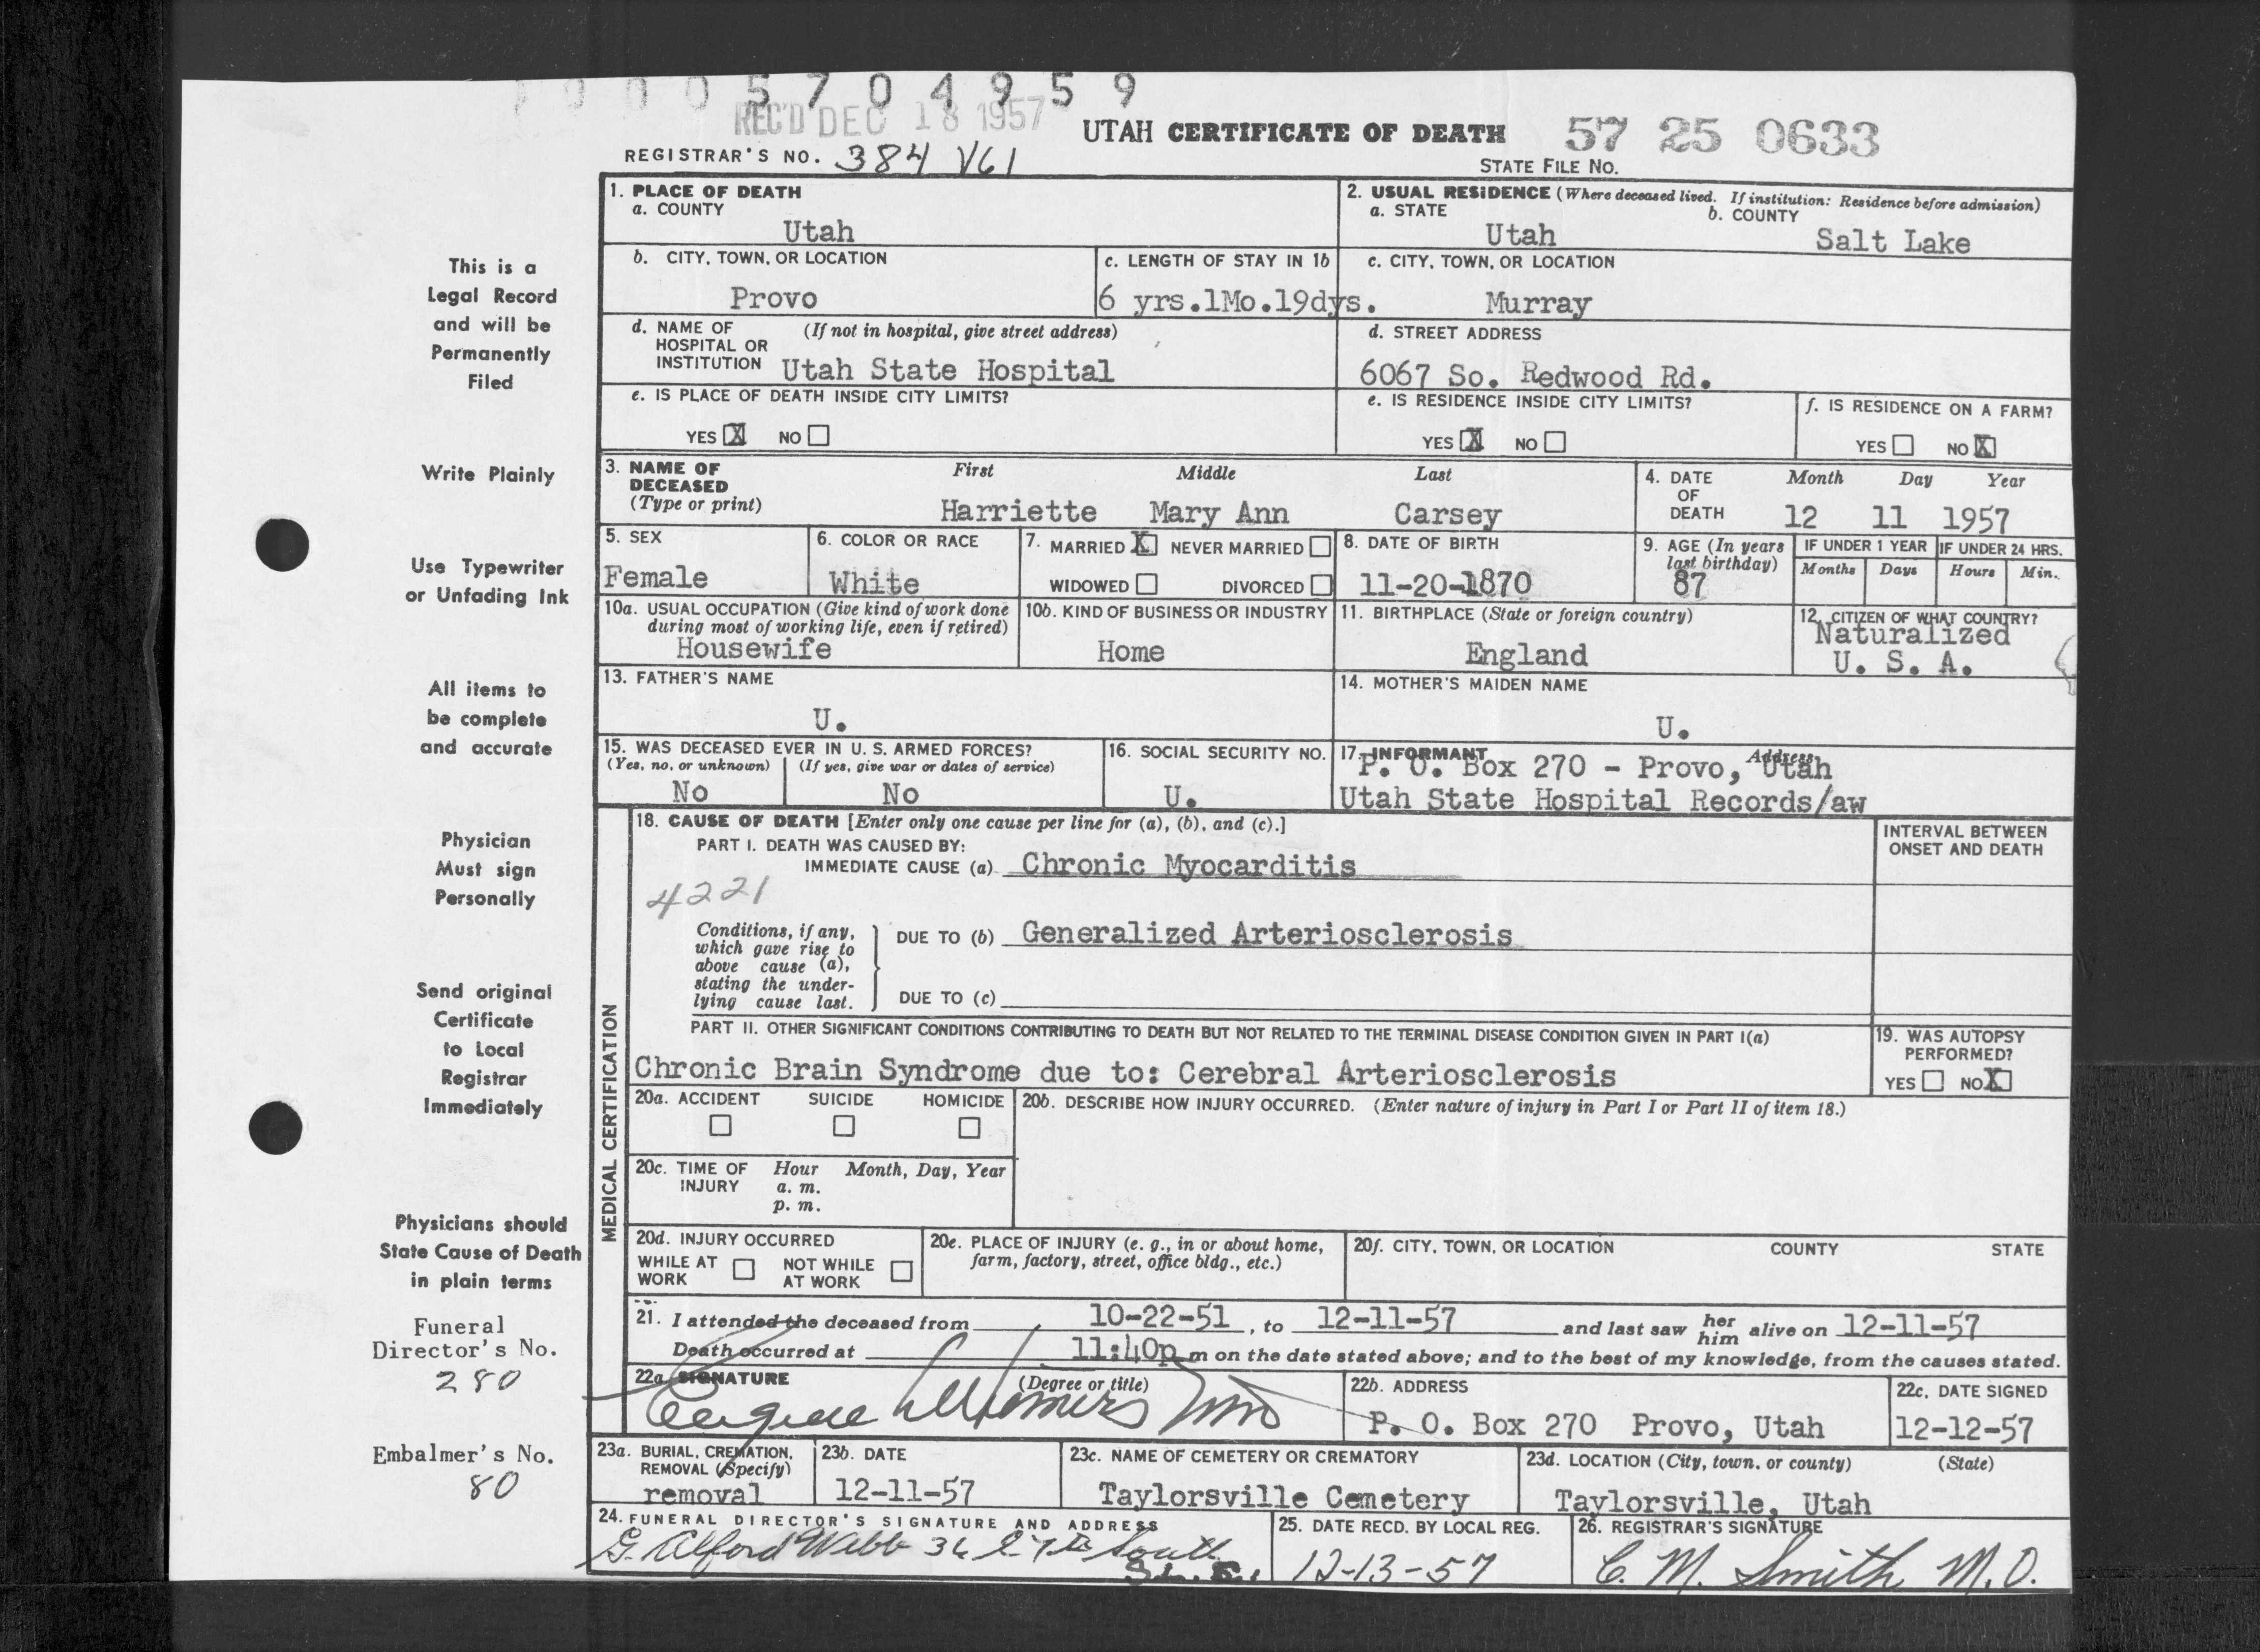 0 0 0 5 7 0 4 9 5 9
REC'D DEC 18 1957
UTAH CERTIFICATE OF DEATH
57 25 0633
REGISTRAR'S NO. 384 V61
STATE FILE NO.
This is a
Legal Record
and will be
Permanently
Filed
Write Plainly
Use Typewriter
or Unfading Ink
All items to
be complete
and accurate
Physician
Must sign
Personally
Send original
Certificate
to Local
Registrar
Immediately
Physicians should
State Cause of Death
in plain terms
Funeral
Director's No.
280
Embalmer's No.
80
1. PLACE OF DEATH
a. COUNTY
Utah
2. USUAL RESIDENCE (Where deceased lived. If institution: Residence before admission)
a. STATE
Utah
b. COUNTY
Salt Lake
b. CITY, TOWN, OR LOCATION
Provo
c. LENGTH OF STAY IN 1b
6 yrs.1Mo.19dys.
c. CITY, TOWN, OR LOCATION
Murray
d. NAME OF (If not in hospital, give street address)
HOSPITAL OR
INSTITUTION Utah State Hospital
d. STREET ADDRESS
6067 So. Redwood Rd.
e. IS PLACE OF DEATH INSIDE CITY LIMITS?
YES X NO
e. IS RESIDENCE INSIDE CITY LIMITS?
YES X NO
f. IS RESIDENCE ON A FARM?
YES NO X
3. NAME OF DECEASED
(Type or print)
First Middle Last
Harriette Mary Ann Carsey
4. DATE OF DEATH
Month Day Year
12 11 1957
5. SEX
Female
6. COLOR OR RACE
White
7. MARRIED X NEVER MARRIED
WIDOWED DIVORCED
8. DATE OF BIRTH
11-20-1870
9. AGE (In years last birthday)
87
IF UNDER 1 YEAR
Months Days
IF UNDER 24 HRS.
Hours Min.
10a. USUAL OCCUPATION (Give kind of work done
during most of working life, even if retired)
Housewife
10b. KIND OF BUSINESS OR INDUSTRY
Home
11. BIRTHPLACE (State or foreign country)
England
12. CITIZEN OF WHAT COUNTRY?
Naturalized
U. S. A.
13. FATHER'S NAME
U.
14. MOTHER'S MAIDEN NAME
U.
15. WAS DECEASED EVER IN U. S. ARMED FORCES?
(Yes, no, or unknown) (If yes, give war or dates of service)
No No
16. SOCIAL SECURITY NO.
U.
17. INFORMANT Address
P. O. Box 270 - Provo, Utah
Utah State Hospital Records/aw
MEDICAL CERTIFICATION
18. CAUSE OF DEATH [Enter only one cause per line for (a), (b), and (c).]
PART I. DEATH WAS CAUSED BY:
IMMEDIATE CAUSE (a) Chronic Myocarditis
INTERVAL BETWEEN
ONSET AND DEATH
4221
Conditions, if any,
which gave rise to
above cause (a),
stating the under-
lying cause last.
DUE TO (b) Generalized Arteriosclerosis
DUE TO (c)
PART II. OTHER SIGNIFICANT CONDITIONS CONTRIBUTING TO DEATH BUT NOT RELATED TO THE TERMINAL DISEASE CONDITION GIVEN IN PART I(a)
Chronic Brain Syndrome due to: Cerebral Arteriosclerosis
19. WAS AUTOPSY
PERFORMED?
YES NO X
20a. ACCIDENT SUICIDE HOMICIDE
20b. DESCRIBE HOW INJURY OCCURRED. (Enter nature of injury in Part I or Part II of item 18.)
20c. TIME OF INJURY
Hour Month, Day, Year
a. m.
p. m.
20d. INJURY OCCURRED
WHILE AT WORK NOT WHILE AT WORK
20e. PLACE OF INJURY (e. g., in or about home,
farm, factory, street, office bldg., etc.)
20f. CITY, TOWN, OR LOCATION COUNTY STATE
21. I attended the deceased from 10-22-51, to 12-11-57 and last saw her him alive on 12-11-57
Death occurred at 11:40p m on the date stated above; and to the best of my knowledge, from the causes stated.
22a. SIGNATURE (Degree or title)
Eugene
22b. ADDRESS
P. O. Box 270 Provo, Utah
22c. DATE SIGNED
12-12-57
23a. BURIAL, CREMATION,
REMOVAL (Specify)
removal
23b. DATE
12-11-57
23c. NAME OF CEMETERY OR CREMATORY
Taylorsville Cemetery
23d. LOCATION (City, town, or county) (State)
Taylorsville, Utah
24. FUNERAL DIRECTOR'S SIGNATURE AND ADDRESS
G. Alford Webb 36 E 7th South
25. DATE RECD. BY LOCAL REG.
12-13-57
26. REGISTRAR'S SIGNATURE
C. M. Smith M.D.